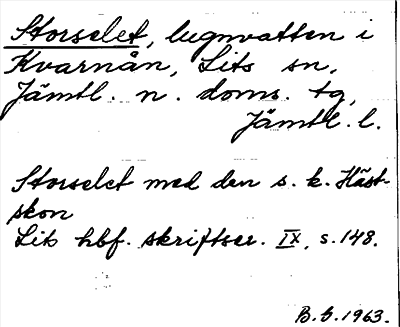 Storselet, lugnvatten i
Kvarnån, Lits sn,
Jämtl. n. doms. tg,
Jämtl. l.
Storselet med den s. k. Häst-
skon
Lits hbf. skriftser. IX, s. 148.
B.b. 1963.